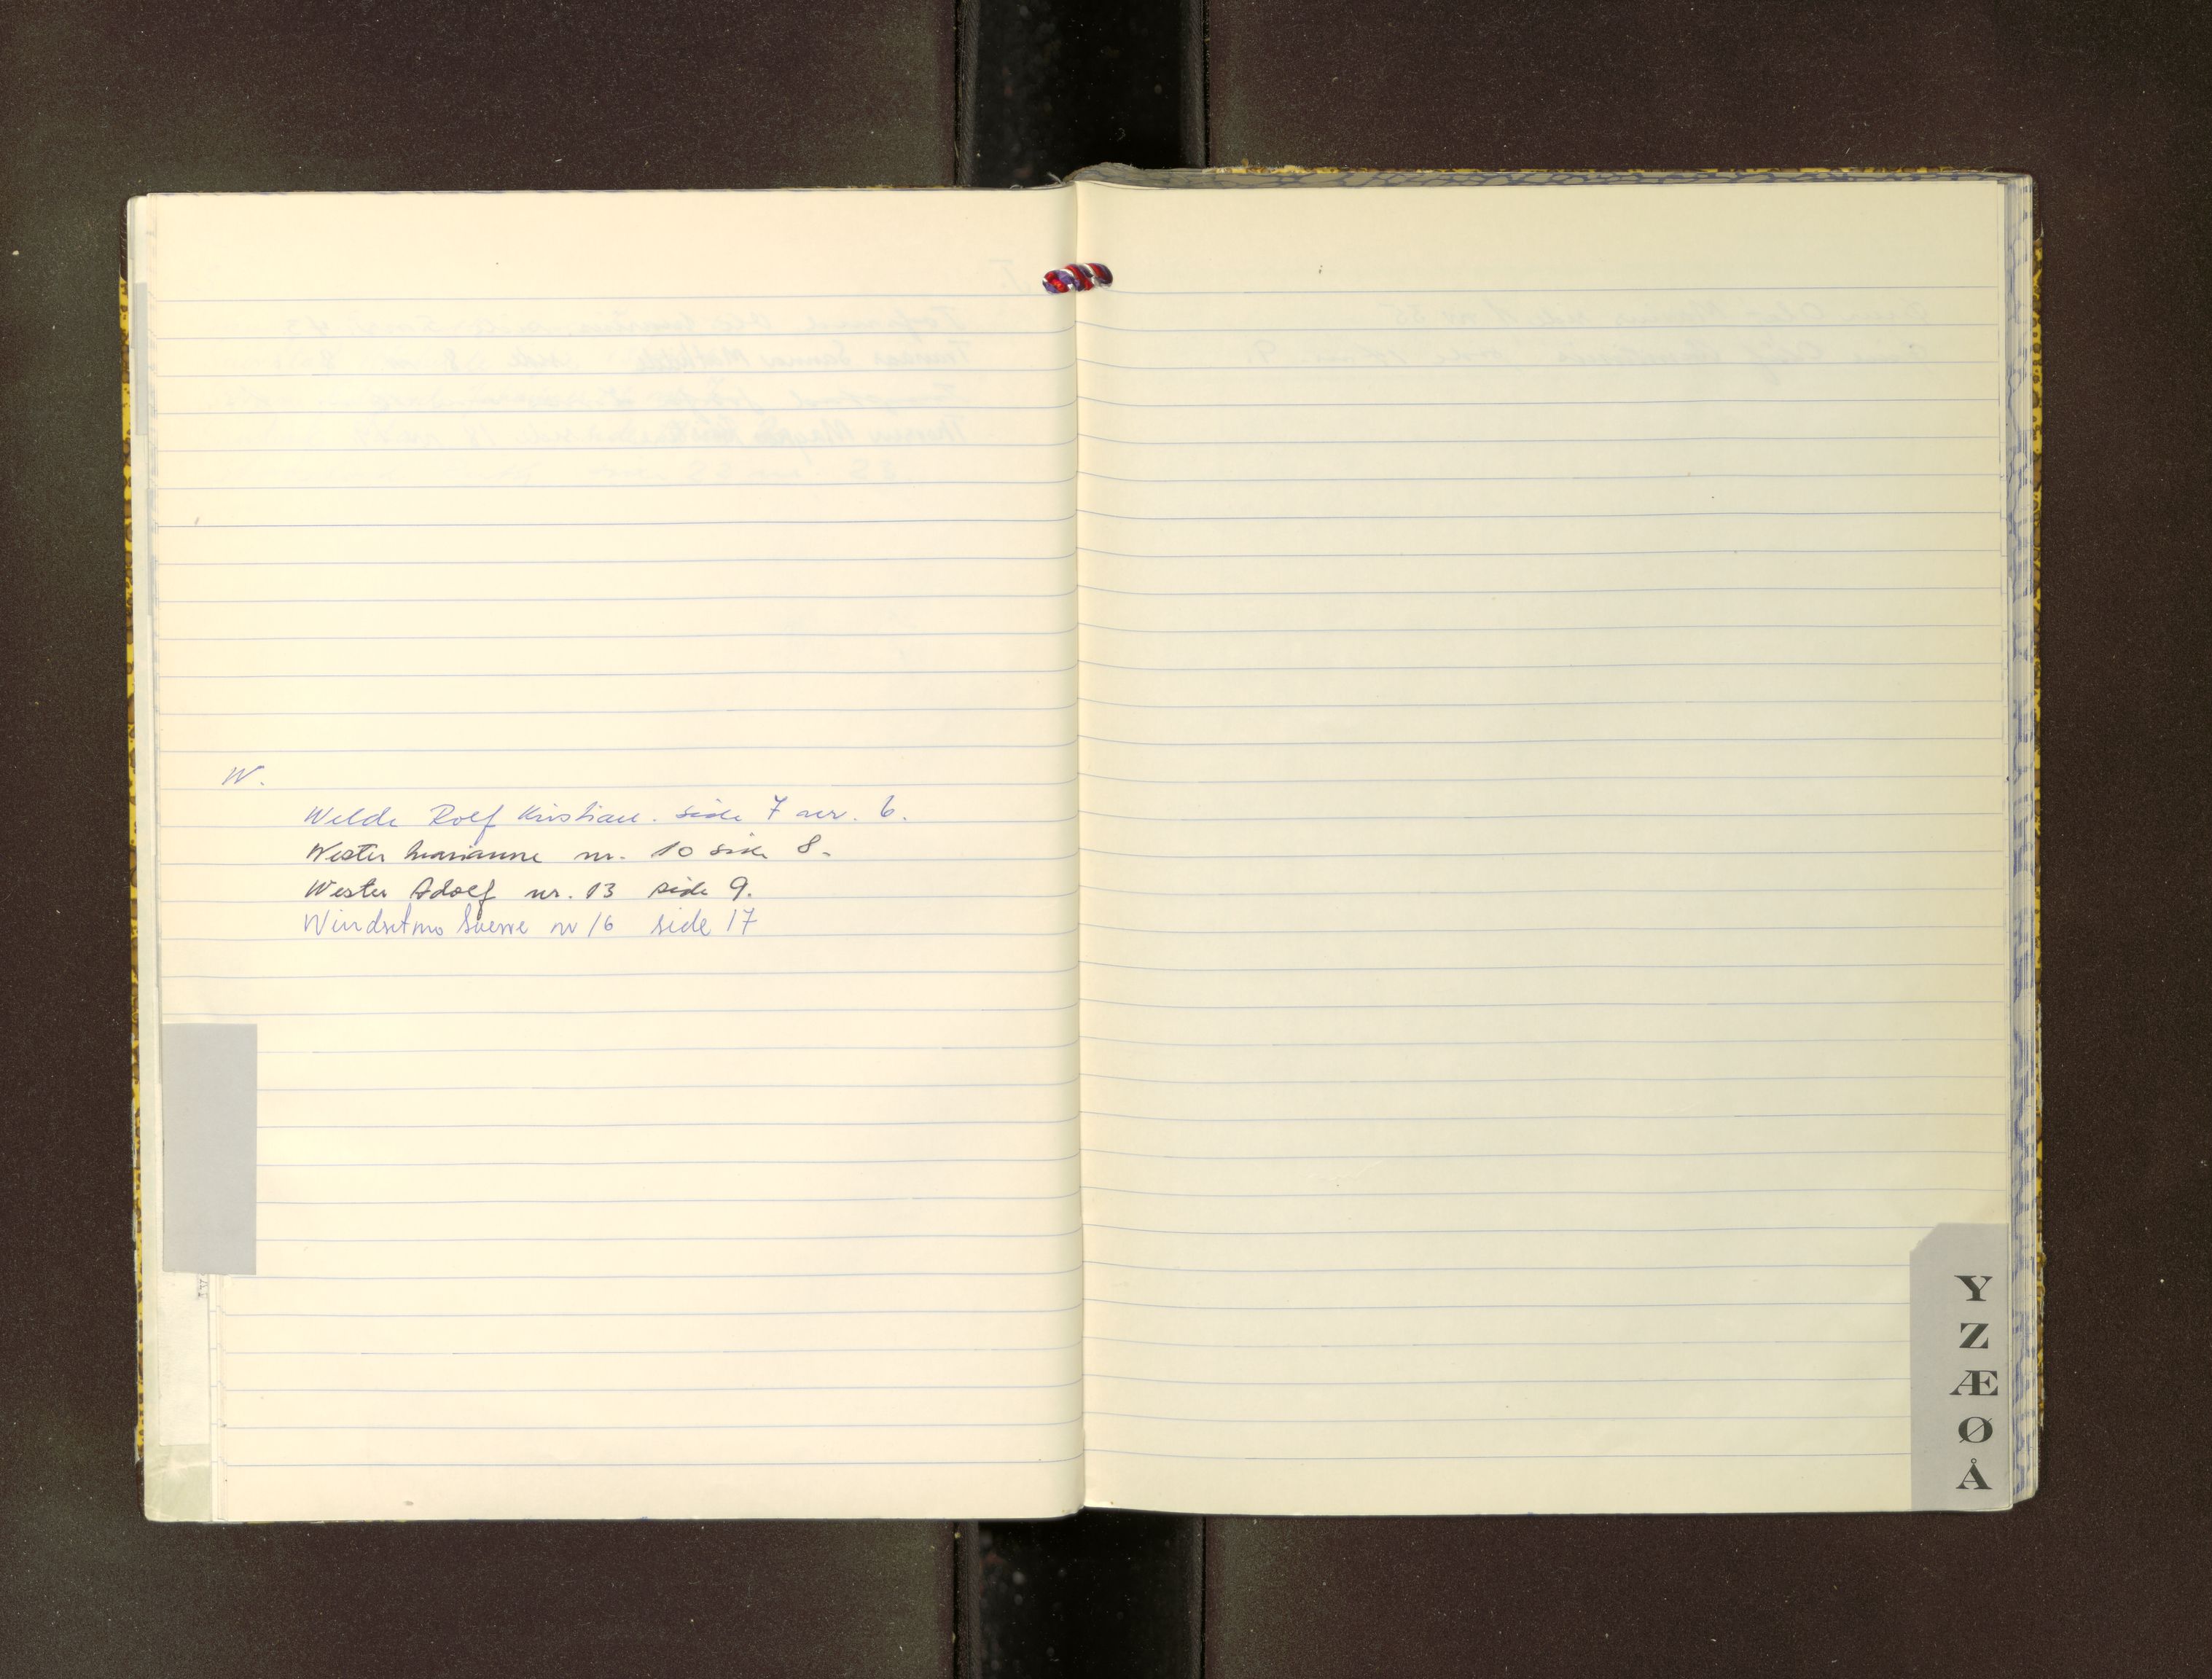 W.
Welde Rolf Kristian. side 7 nr. 6.
Wester Marianne nr. 10 side 8.
Wester Adolf nr. 13 side 9.
Windsetmo Sverre nr 16 side 17
Y
Z
Æ
Ø
Å